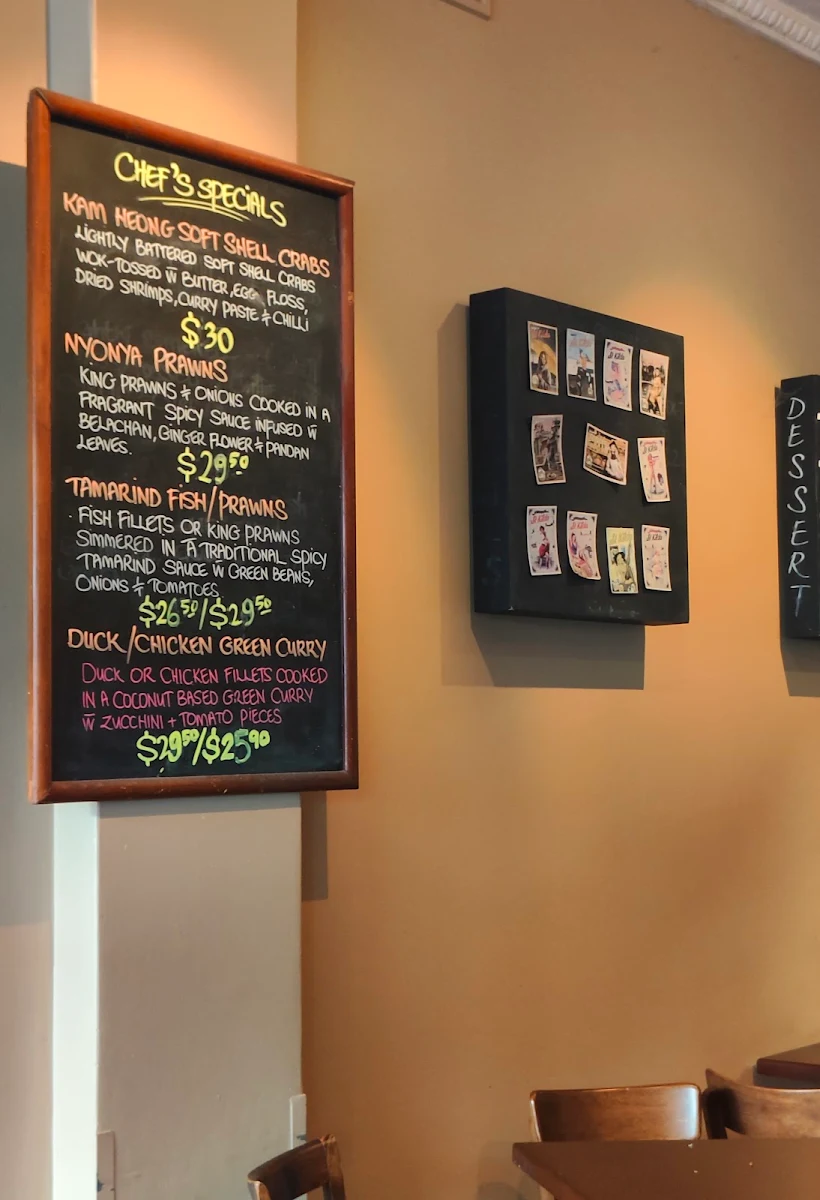 CHEF'S SPECIALS
KAM HEONG SOFT SHELL CRABS
LIGHTLY BATTERED SOFT SHELL CRABS
WOK-TOSSED W̄ BUTTER, EGG FLOSS,
DRIED SHRIMPS, CURRY PASTE & CHILLI
$30
NYONYA PRAWNS
KING PRAWNS & ONIONS COOKED IN A
FRAGRANT SPICY SAUCE INFUSED W̄
BELACHAN, GINGER FLOWER & PANDAN
LEAVES.
$29⁵⁰
TAMARIND FISH/PRAWNS
FISH FILLETS OR KING PRAWNS
SIMMERED IN A TRADITIONAL SPICY
TAMARIND SAUCE W̄ GREEN BEANS,
ONIONS & TOMATOES
$26⁵⁰/$29⁵⁰
DUCK/CHICKEN GREEN CURRY
DUCK OR CHICKEN FILLETS COOKED
IN A COCONUT BASED GREEN CURRY
W̄ ZUCCHINI + TOMATO PIECES
$29⁵⁰/$25⁹⁰
DESSERT